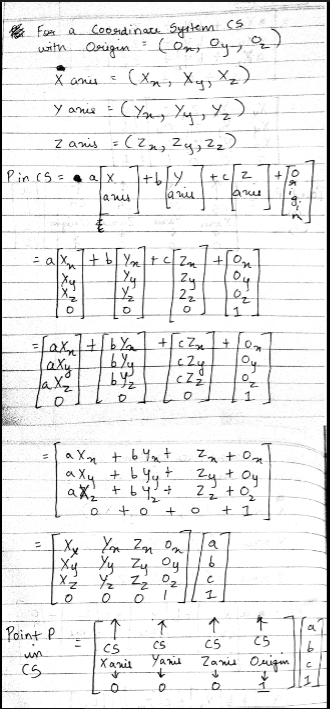 For a Coordinate System CS
with Origin = (Ox, Oy, Oz)
X axis = (Xx, Xy, Xz)
Y axis = (Yx, Yy, Yz)
Z axis = (Zx, Zy, Zz)
P in CS = a [X axis] + b [Y axis] + c [Z axis] + [Origin]
= a [Xx Xy Xz 0] + b [Yx Yy Yz 0] + c [Zx Zy Zz 0] + [Ox Oy Oz 1]
= [aXx aXy aXz 0] + [bYx bYy bYz 0] + [cZx cZy cZz 0] + [Ox Oy Oz 1]
= [ aXx + bYx + Zx + Ox
aXy + bYy + Zy + Oy
aXz + bYz + Zz + Oz
0 + 0 + 0 + 1 ]
= [ Xx Yx Zx Ox ] [ a
Xy Yy Zy Oy b
Xz Yz Zz Oz c
0 0 0 1 1 ]
Point P in CS = [ ↑ ↑ ↑ ↑ ] [ a
CS CS CS CS b
X axis Y axis Z axis Origin c
↓ ↓ ↓ ↓
0 0 0 1 1 ]